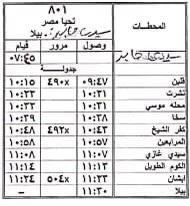 ٨٠١
تحيا مصر
سيدى جابر: بيلا
المحطات
وصول مرور قيام
سيدى جابر ٠٧:٤٥
جدولــة
قلين ٠٩:٤٧ ٤٩٠x ١٠:١٥
نشرت ١٠:٢١ ١٠:٢٢
محله موسي ١٠:٢٧ ١٠:٢٨
سخا ١٠:٣٤ ١٠:٣٥
كفر الشيخ ١٠:٤٣ ٤٩٢x ١٠:٤٨
المرابعين ١٠:٥٤ ١٠:٥٥
سيدي غازي ١١:٠٧ ١١:٠٨
الكوم الطويل ١١:١٣ ١١:١٤
ابشان ١١:٢٣ ٥٠٤x ١١:٢٤
بيلا ١١:٣٠